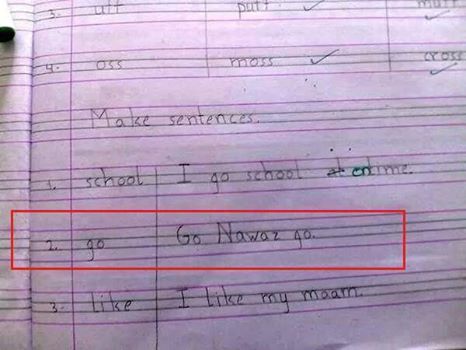 3. uff puff ✓
4. oss moss ✓ cross ✓
Make sentences.
1. school I go school ontime.
2. go Go Nawaz go.
3. like I like my maam.